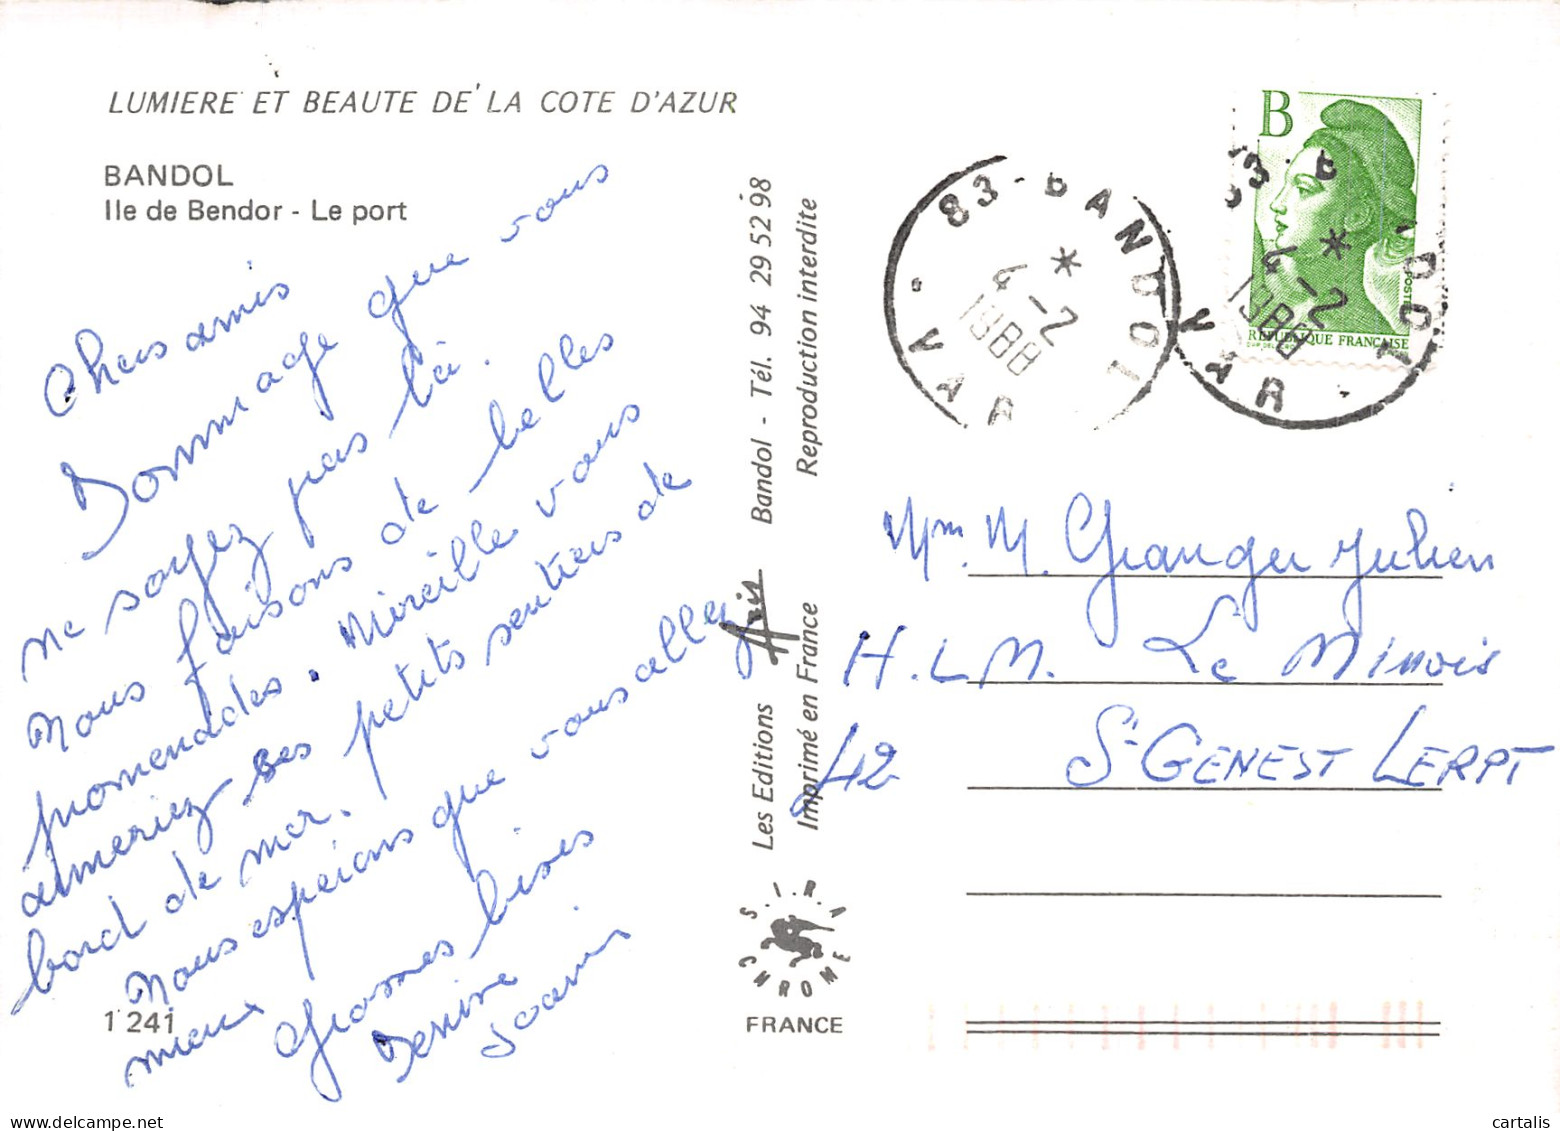 LUMIERE ET BEAUTE DE LA COTE D'AZUR
BANDOL
Ile de Bendor - Le port
Chers amis
Dommage que vous
ne soyez pas là.
Nous faisons de belles
promenades. Mireille vous
aimeriez ses petits sentiers de
bord de mer.
Nous espérons que vous allez
mieux
Grosses bises
Denise
Joanis
1 241
Les Editions Aris Bandol - Tél. 94 29 52 98
Imprimé en France Reproduction interdite
S.I.R.A
CHROME
FRANCE
83 - BANDOL
*
4 - 2
1988
VAR
B
POSTES
REPUBLIQUE FRANÇAISE
83 - B DOL
*
4 - 2
1988
VAR
Mm. M. Granger Julien
H.L.M. Le Minois
42 St-GENEST LERPT
cartalis
delcampe.net